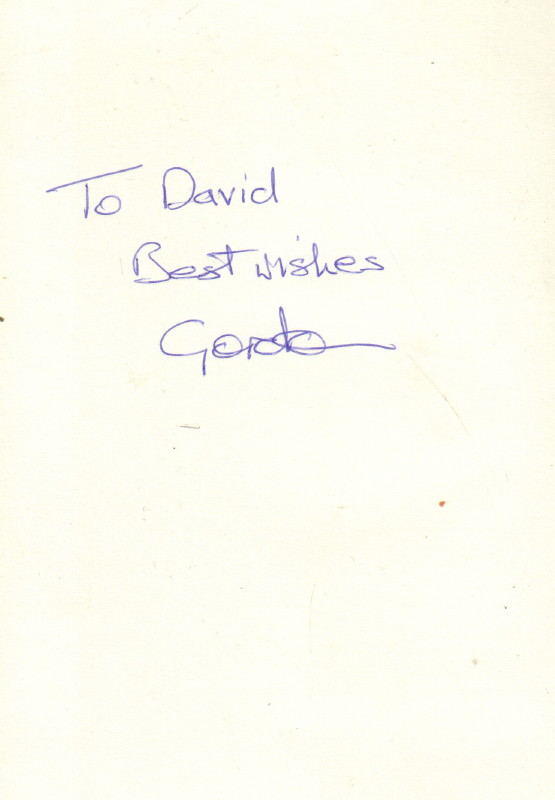 To David
Best wishes
Gordon